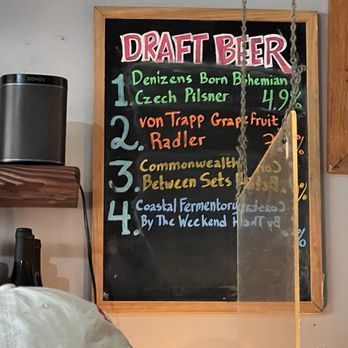 SONOS
DRAFT BEER
1. Denizens Born Bohemian
Czech Pilsner 4.9%
2. von Trapp Grapefruit
Radler
3. Commonwealth
Between Sets
4. Coastal Fermentory
By The Weekend
%